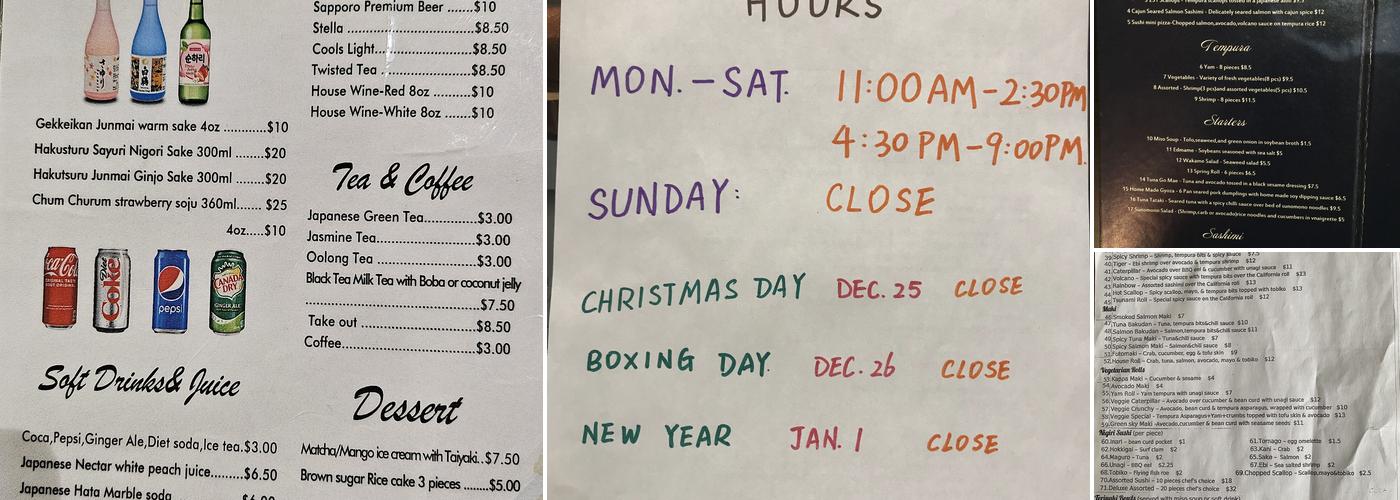 Sapporo Premium Beer ......$10
Stella ..........................$8.50
Cools Light......................$8.50
Twisted Tea ....................$8.50
House Wine-Red 8oz .........$10
House Wine-White 8oz .......$10
Gekkeikan Junmai warm sake 4oz ............$10
Hakusturu Sayuri Nigori Sake 300ml ........$20
Hakutsuru Junmai Ginjo Sake 300ml ........$20
Chum Churum strawberry soju 360ml....... $25
4oz.....$10
순하리
Coca-Cola
Diet Coke
pepsi
CANADA DRY
GINGER ALE
Soft Drinks& Juice
Coca,Pepsi,Ginger Ale,Diet soda,Ice tea.$3.00
Japanese Nectar white peach juice.........$6.50
Japanese Hata Marble soda
Tea & Coffee
Japanese Green Tea...............$3.00
Jasmine Tea..........................$3.00
Oolong Tea ..........................$3.00
Black Tea Milk Tea with Boba or coconut jelly
..........................................$7.50
Take out ..............................$8.50
Coffee..................................$3.00
Dessert
Matcha/Mango ice cream with Taiyaki..$7.50
Brown sugar Rice cake 3 pieces .......$5.00
HOURS
MON.-SAT. 11:00AM-2:30PM
4:30 PM-9:00PM.
SUNDAY: CLOSE
CHRISTMAS DAY DEC. 25 CLOSE
BOXING DAY. DEC. 26 CLOSE
NEW YEAR JAN. 1 CLOSE
4 Cajun Seared Salmon Sashimi - Delicately seared salmon with cajun spice $12
5 Sushi mini pizza-Chopped salmon,avocado,volcano sauce on tempura rice $12
Tempura
6 Yam - 8 pieces $8.5
7 Vegetables - Variety of fresh vegetables(8 pcs) $9.5
8 Assorted - Shrimp(3 pcs)and assorted vegetables(5 pcs) $10.5
9 Shrimp - 8 pieces $11.5
Starters
10 Miso Soup - Tofo,seaweed,and green onion in soybean broth $1.5
11 Edmame - Soybeans seasoned with sea salt $5
12 Wakame Salad - Seaweed salad $5.5
13 Spring Roll - 6 pieces $6.5
14 Tuna Go Mae - Tuna and avocado tossed in a black sesame dressing $7.5
15 Home Made Gyoza - 6 Pan seared pork dumplings with home made soy dipping sauce $6.5
16 Tuna Tataki - Seared tuna with a spicy chilli sauce over bed of sunomono noodles $9.5
17 Sunomono Salad - (Shrimp,carb or avocado)rice noodles and cucumbers in vinaigrette $5
Sashimi
39.Spicy Shrimp - Shrimp, tempura bits & spicy sauce $7.5
40.Tiger - Ebi shrimp over avocado & tempura shrimp $12
41.Caterpillar - Avocado over BBQ eel & cucumber with unagi sauce $11
42.Volcano - Special spicy sauce with tempura bits over the California roll $13
43.Rainbow - Assorted sashimi over the California roll $13
44.Hot Scallop - Spicy scallop, mayo, & tempura bits topped with tobiko $13
45.Tsunami Roll - Special spicy sauce on the California roll $12
Maki
46.Smoked Salmon Maki $7
47.Tuna Bakudan - Tuna, tempura bits&chili sauce $10
48.Salmon Bakudan - Salmon,tempura bits&chili sauce $11
49.Spicy Tuna Maki - Tuna&chili sauce $7
50.Spicy Salmon Maki - Salmon&chili sauce $8
51.Fotomaki - Crab, cucumber, egg & tofu skin $9
52.House Roll - Crab, tuna, salmon, avocado, mayo & tobiko $12
Vegetarian Rolls
53.Kappa Maki - Cucumber & sesame $4
54.Avocado Maki $4
55.Yam Roll - Yam tempura with unagi sauce $7
56.Veggie Caterpillar - Avocado over cucumber & bean curd with unagi sauce $12
57.Veggie Crunchy - Avocado, bean curd & tempura asparagus, wrapped with cucumber $10
58.Veggie Special - Tempura Asparagus+Yam+crumbs topped with tofu skin & avocado $13
59.Green sky Maki -Avocado,cucumber & bean curd with seasame seeds $11
Nigiri Sushi (per piece)
60.Inari - bean curd pocket $1 61.Tornago - egg omelette $1.5
62.Hokkigai - Surf clam $2 63.Kani - Crab $2
64.Maguro - Tuna $2 65.Sake - Salmon $2
66.Unagi - BBQ eel $2.25 67.Ebi - Sea salted shrimp $2
68.Tobiko - Flying fish roe $2 69.Chopped Scallop - Scallop,mayo&tobiko $2.5
70.Assorted Sushi - 10 pieces chef's choice $18
71.Deluxe Assorted - 20 pieces chef's choice $32